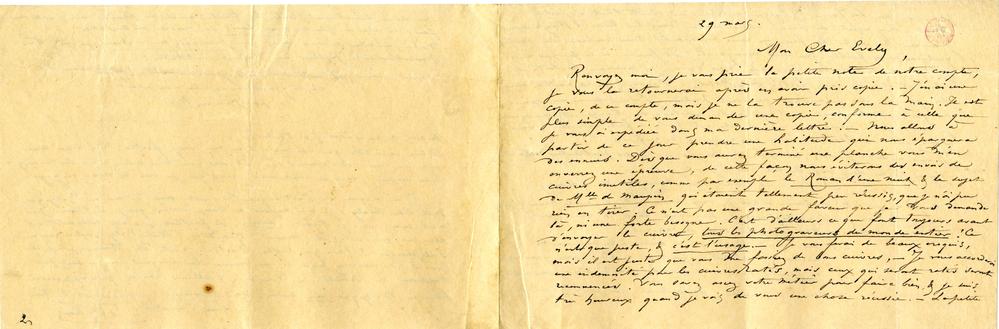 29 mars.
Mon Cher Evely,
Renvoyez moi, je vous prie la petite note de notre compte,
je vous la retournerai après en avoir pris copie. — J'en ai une
copie, de ce compte, mais je ne la trouve pas sous la main. Il est
plus simple de vous demander une copie, conforme à celle que
je vous ai expédiée dans ma dernière lettre. — Nous allons à
partir de ce jour prendre une habitude qui nous épargnera
des ennuis. Dès que vous aurez terminé une planche vous m'en
enverrez une épreuve, de cette façon nous éviterons des envois de
cuivres inutiles, comme par exemple le Roman d'une nuit & le sujet
de Mlle de Maupin qui étaient tellement peu réussis, que je n'ai pu
rien en tirer. Ce n'est pas une grande faveur que je vous demande
là, ni une forte besogne. C'est d'ailleurs ce que font toujours avant
d'envoyer le cuivre, tous les photograveurs du monde entier! Ce
n'est que juste, & c'est l'usage. — Je vous ferai de beaux croquis,
mais il est juste que vous me fassiez de bons cuivres, — Je vous accorderai
une indemnité pour les cuivres ratés, mais ceux qui seront ratés seront
recommencés. Vous savez assez votre métier pour faire bien, & je suis
très heureux quand je vois de vous une chose réussie. — La petite
2